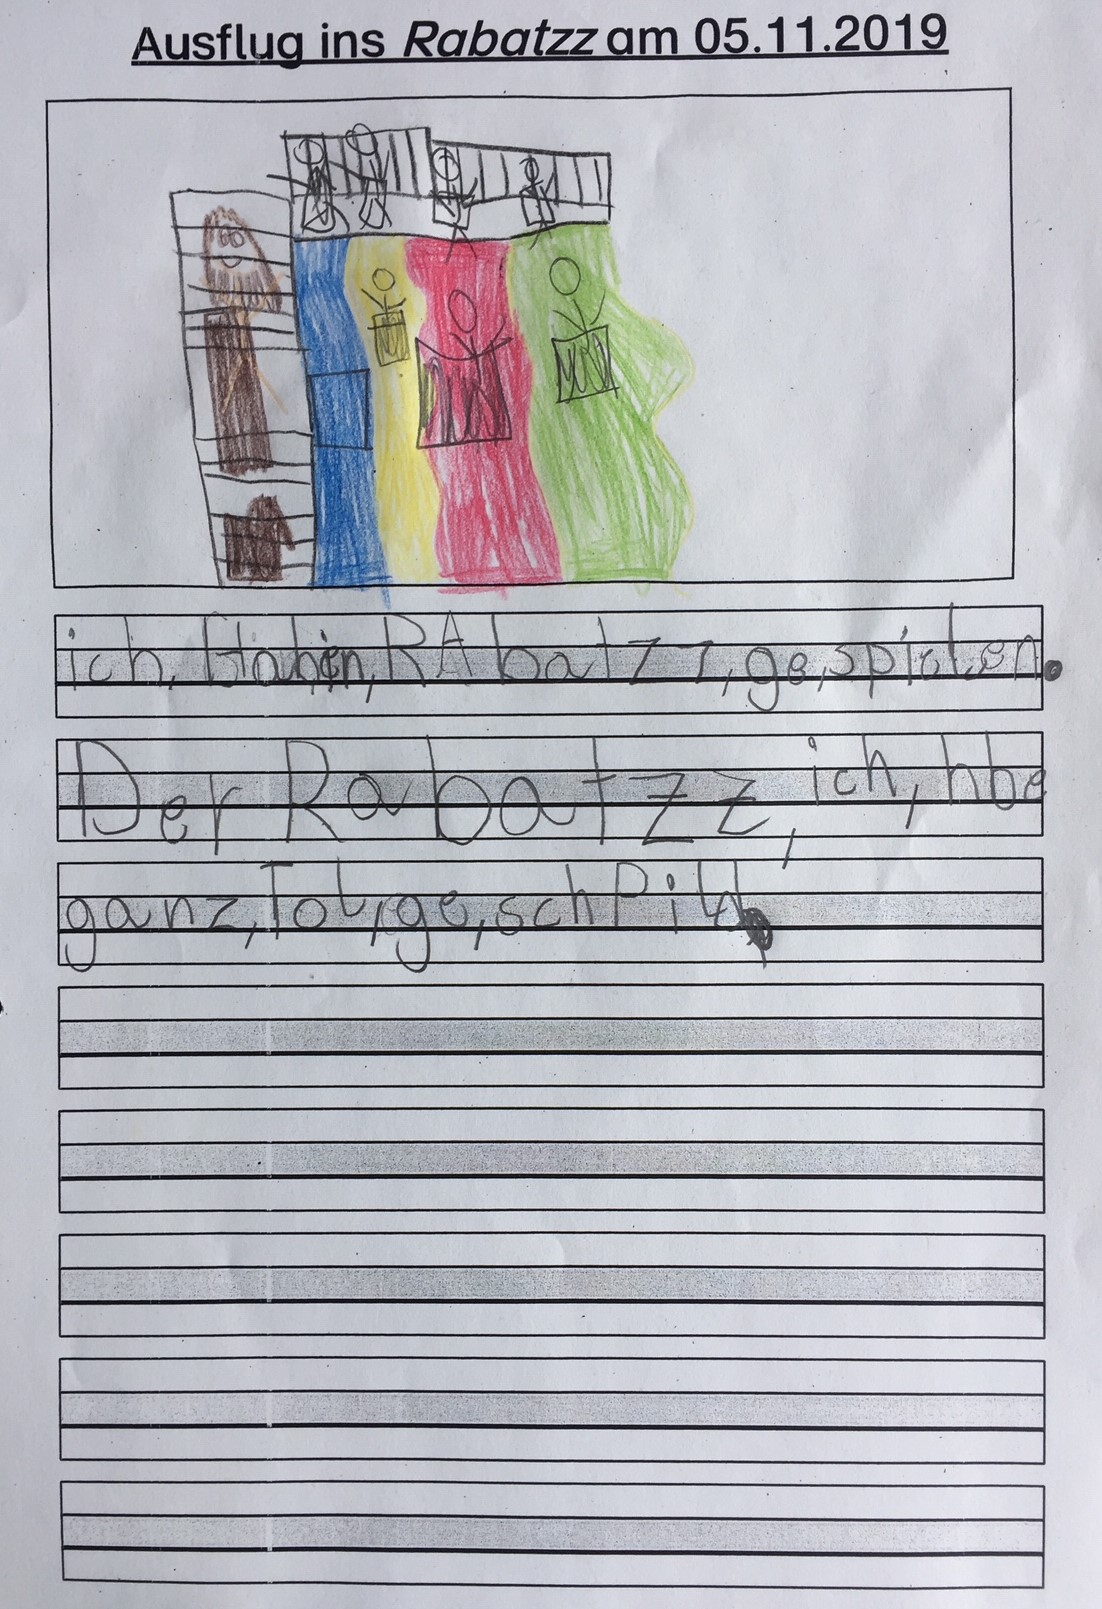 Ausflug ins Rabatzz am 05.11.2019
ich, Habin, RAbatzz, ge,spielen.
Der Rabatzz, ich, hbe
ganz, Tol, ge, schPild.